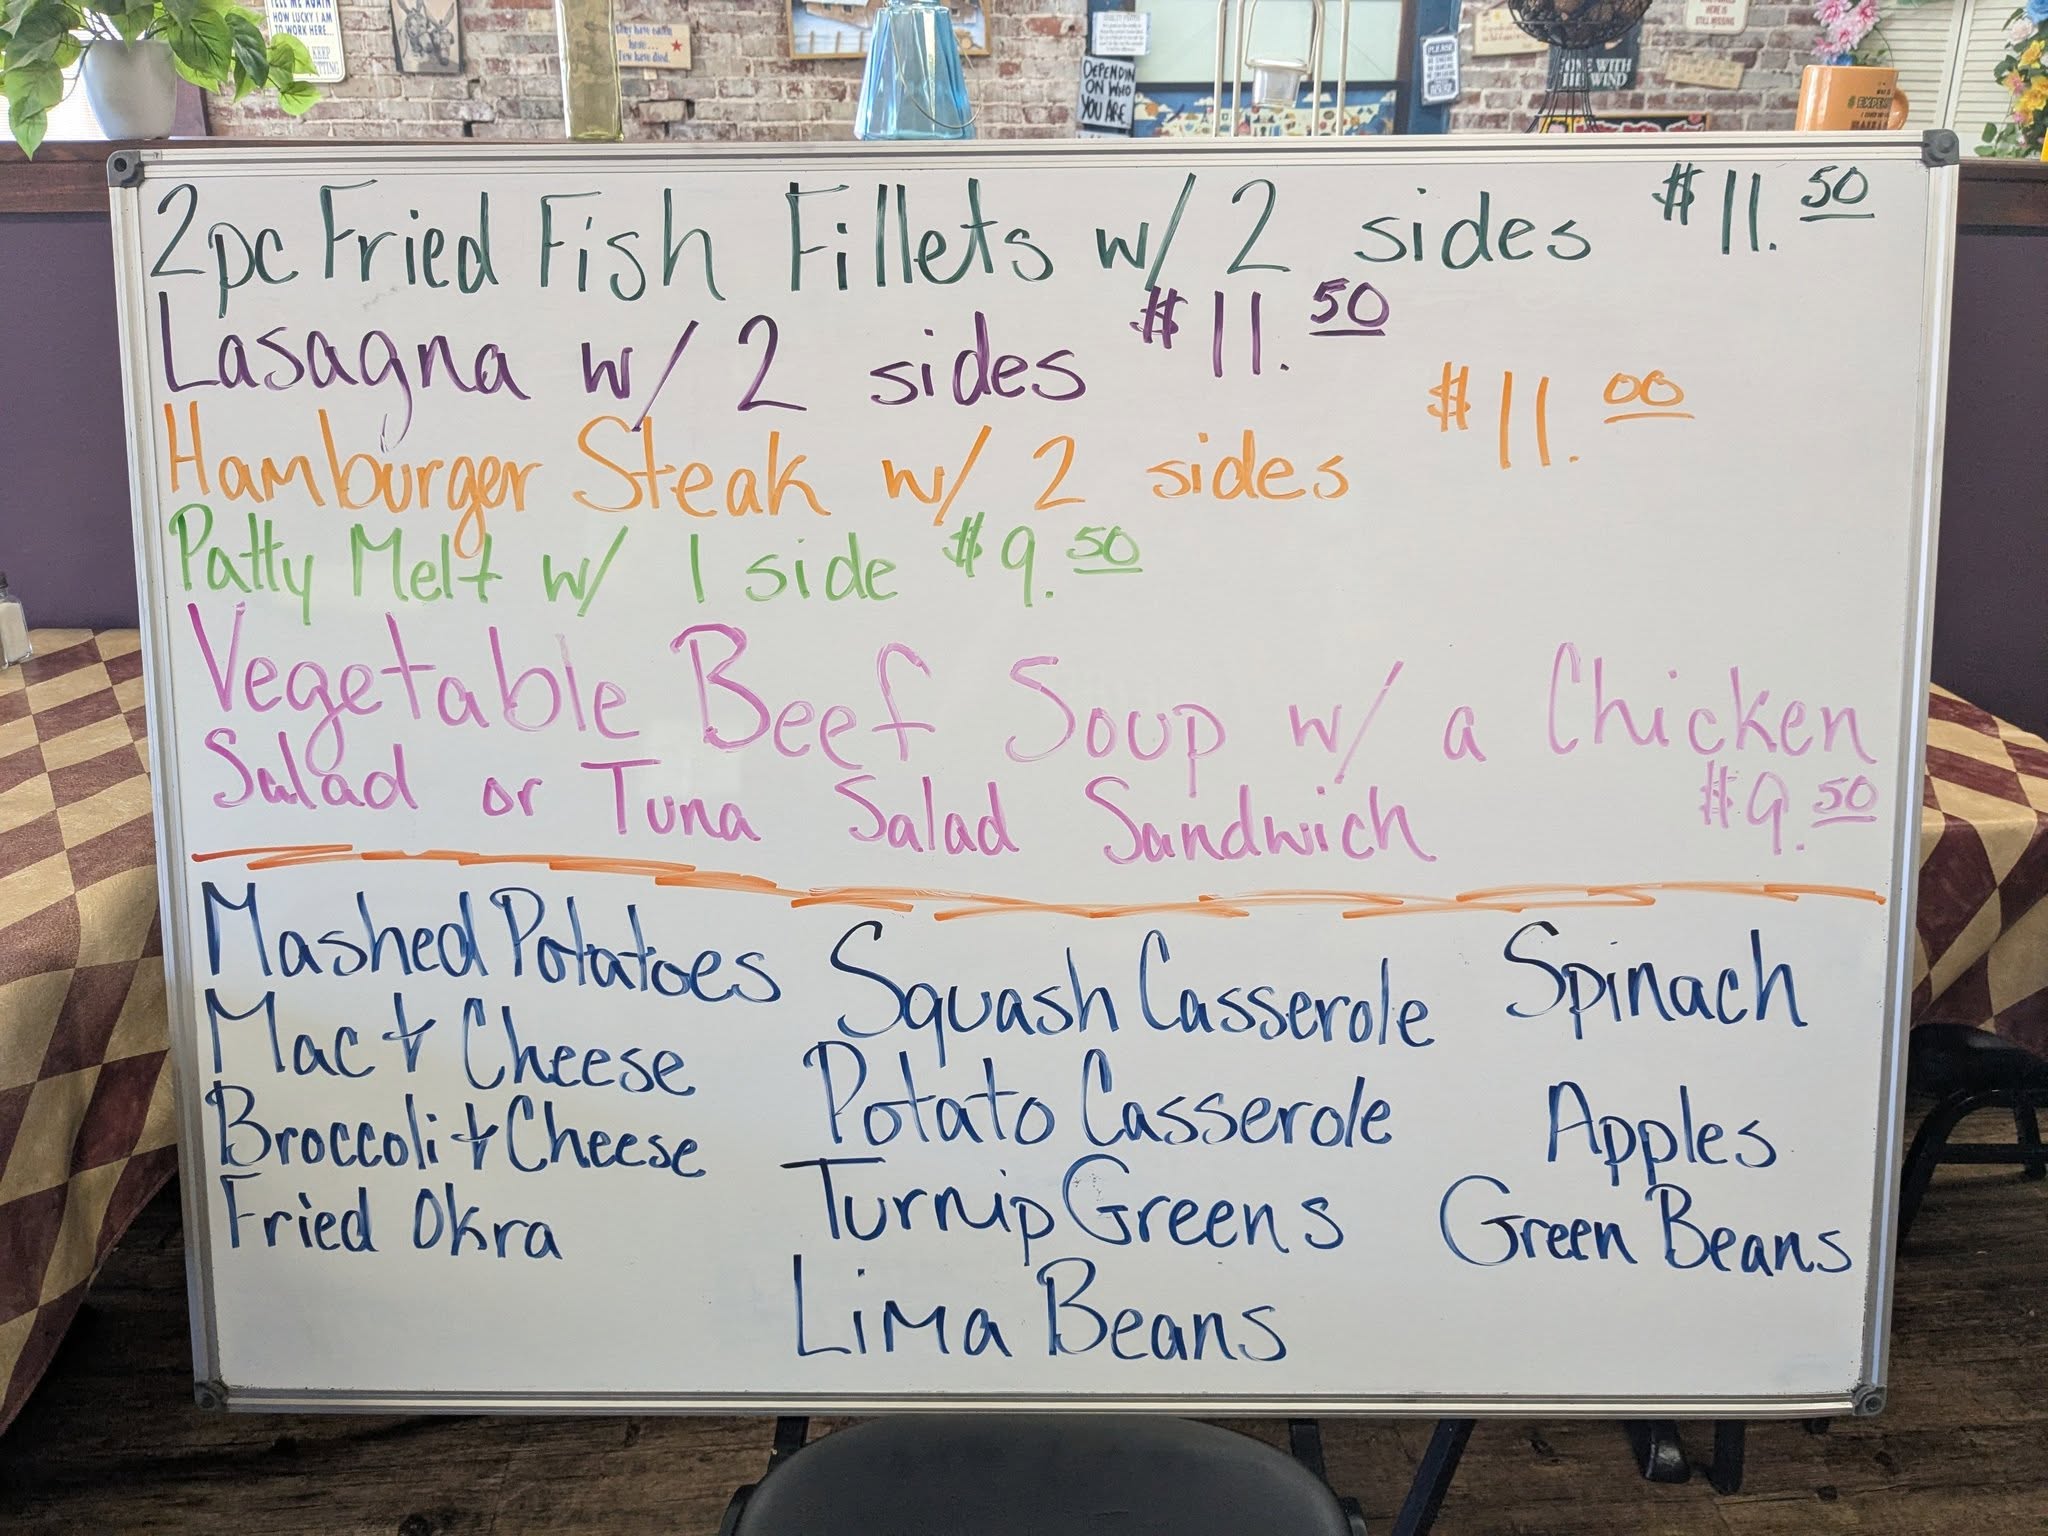 TELL ME AGAIN
HOW LUCKY I AM
TO WORK HERE...
I KEEP
They have eaten
here...
Few have died.
DEPENDIN
ON WHO
YOU ARE
PLEASE
GONE WITH
THE WIND
HERE IS
STILL MISSING
2pc Fried Fish Fillets w/ 2 sides $11.50
Lasagna w/ 2 sides $11.50
Hamburger Steak w/ 2 sides $11.00
Patty Melt w/ 1 side $9.50
Vegetable Beef Soup w/ a Chicken
Salad or Tuna Salad Sandwich $9.50
Mashed Potatoes
Mac & Cheese
Broccoli & Cheese
Fried Okra
Squash Casserole
Potato Casserole
Turnip Greens
Lima Beans
Spinach
Apples
Green Beans